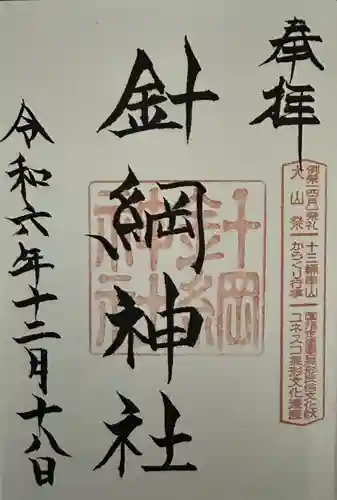 奉拝
針綱神社
令和六年十二月十八日
針綱神社
例祭 四月 祭礼 十三輌車山 国指定重要無形民俗文化財
犬山祭 からくり行事 ユネスコ無形文化遺産